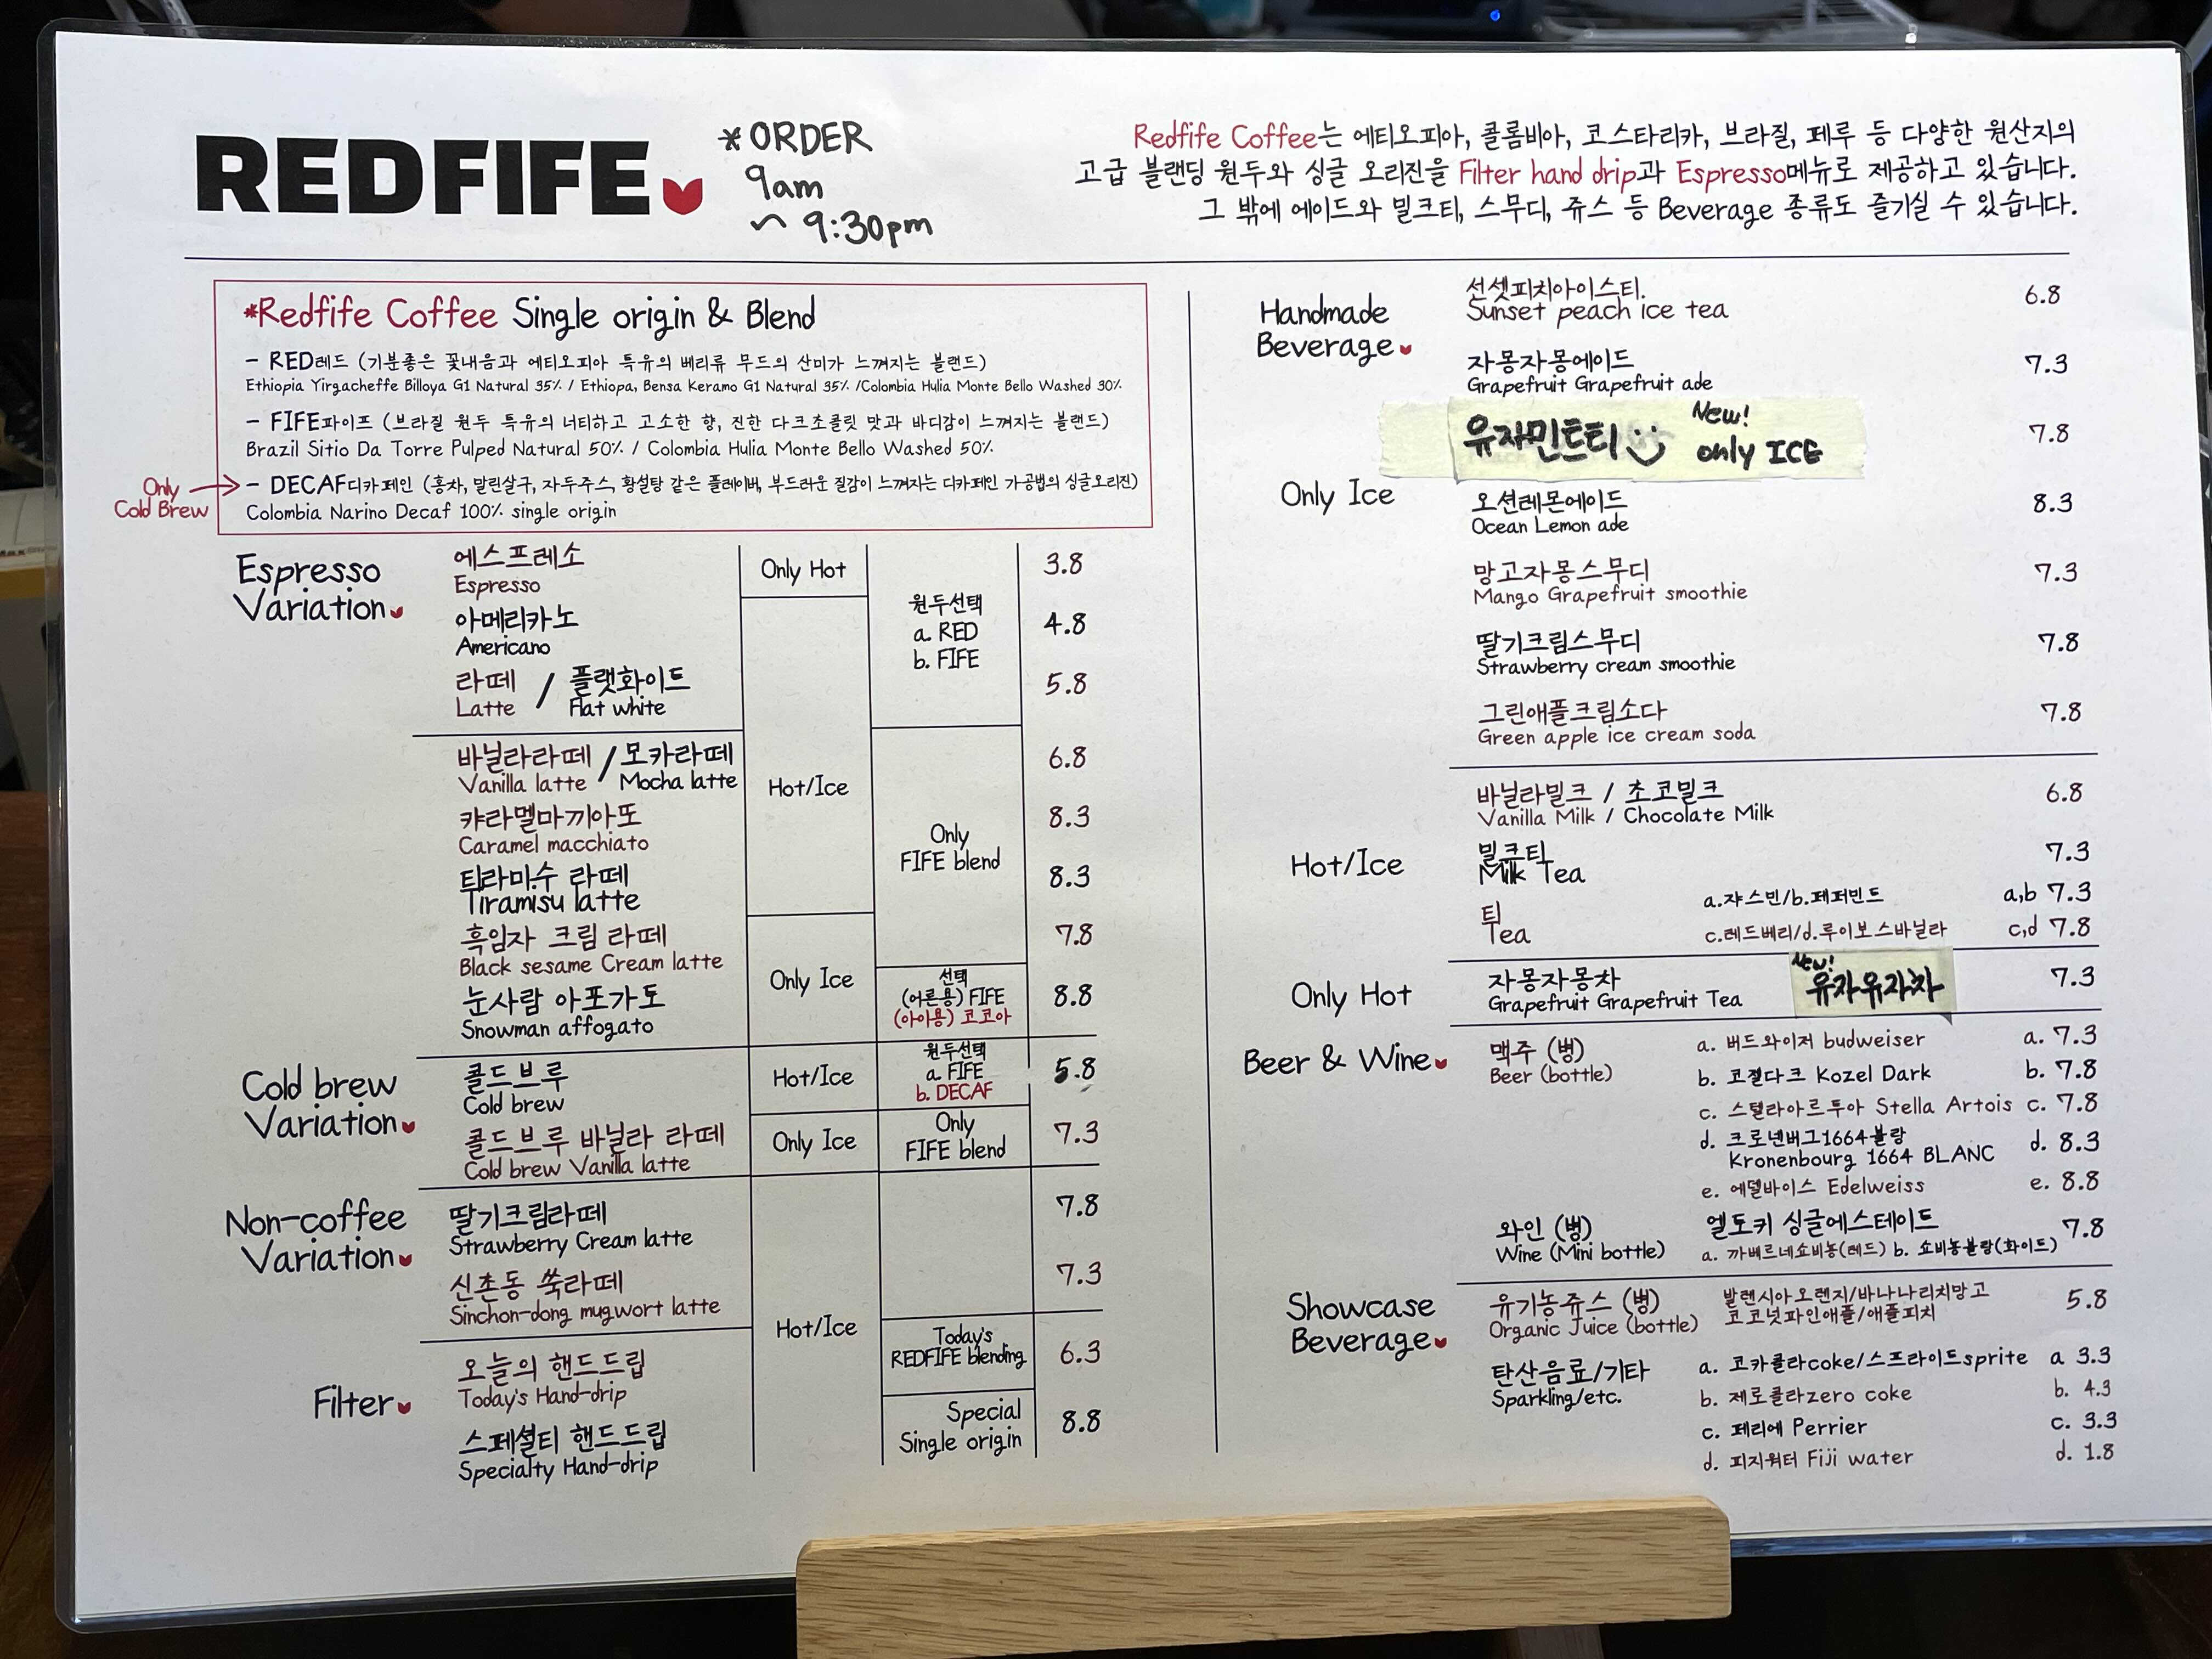 REDFIFE
*ORDER
9am
~ 9:30pm
Redfife Coffee는 에티오피아, 콜롬비아, 코스타리카, 브라질, 페루 등 다양한 원산지의
고급 블랜딩 원두와 싱글 오리진을 Filter hand drip과 Espresso메뉴로 제공하고 있습니다.
그 밖에 에이드와 밀크티, 스무디, 쥬스 등 Beverage 종류도 즐기실 수 있습니다.
*Redfife Coffee Single origin & Blend
- RED레드 (기분좋은 꽃내음과 에티오피아 특유의 베리류 무드의 산미가 느껴지는 블랜드)
Ethiopia Yirgacheffe Billoya G1 Natural 35% / Ethiopa, Bensa Keramo G1 Natural 35% /Colombia Hulia Monte Bello Washed 30%
- FIFE파이프 (브라질 원두 특유의 너티하고 고소한 향, 진한 다크초콜릿 맛과 바디감이 느껴지는 블랜드)
Brazil Sitio Da Torre Pulped Natural 50% / Colombia Hulia Monte Bello Washed 50%
Only
Cold Brew
- DECAF디카페인 (홍차, 말린살구, 자두주스, 황설탕 같은 플레이버, 부드러운 질감이 느껴지는 디카페인 가공법의 싱글오리진)
Colombia Narino Decaf 100% single origin
Espresso
Variation
에스프레소
Espresso
Only Hot
3.8
아메리카노
Americano
4.8
원두선택
a. RED
b. FIFE
라떼 / 플랫화이트
Latte Flat white
5.8
바닐라라떼 / 모카라떼
Vanilla latte Mocha latte
Hot/Ice
6.8
캬라멜마끼아또
Caramel macchiato
8.3
Only
FIFE blend
티라미수 라떼
Tiramisu latte
8.3
흑임자 크림 라떼
Black sesame Cream latte
7.8
Only Ice
눈사람 아포가토
Snowman affogato
선택
(어른용) FIFE
(아이용) 코코아
8.8
Cold brew
Variation
콜드브루
Cold brew
Hot/Ice
원두선택
a. FIFE
b. DECAF
5.8
콜드브루 바닐라 라떼
Cold brew Vanilla latte
Only Ice
Only
FIFE blend
7.3
Non-coffee
Variation
딸기크림라떼
Strawberry Cream latte
7.8
신촌동 쑥라떼
Sinchon-dong mugwort latte
7.3
Hot/Ice
Filter
오늘의 핸드드립
Today's Hand-drip
Today's
REDFIFE blending
6.3
스페셜티 핸드드립
Specialty Hand-drip
Special
Single origin
8.8
Handmade
Beverage
선셋피치아이스티.
Sunset peach ice tea
6.8
자몽자몽에이드
Grapefruit Grapefruit ade
7.3
유자민트티 New! only ICE
7.8
Only Ice
오션레몬에이드
Ocean Lemon ade
8.3
망고자몽스무디
Mango Grapefruit smoothie
7.3
딸기크림스무디
Strawberry cream smoothie
7.8
그린애플크림소다
Green apple ice cream soda
7.8
바닐라밀크 / 초코밀크
Vanilla Milk / Chocolate Milk
6.8
Hot/Ice
밀크티
Milk Tea
7.3
티
Tea
a.쟈스민/b.페퍼민트 a,b 7.3
c.레드베리/d.루이보스바닐라 c,d 7.8
Only Hot
자몽자몽차
Grapefruit Grapefruit Tea
New!
유자유자차
7.3
Beer & Wine
맥주 (병)
Beer (bottle)
a. 버드와이저 budweiser a. 7.3
b. 코젤다크 Kozel Dark b. 7.8
c. 스텔라아르투아 Stella Artois c. 7.8
d. 크로넨버그1664블랑
Kronenbourg 1664 BLANC d. 8.3
e. 에델바이스 Edelweiss e. 8.8
와인 (병)
Wine (Mini bottle)
엘도키 싱글에스테이트
a. 까베르네쇼비뇽(레드) b. 쇼비뇽블랑(화이트)
7.8
Showcase
Beverage
유기농쥬스 (병)
Organic Juice (bottle)
발렌시아오렌지/바나나리치망고
코코넛파인애플/애플피치
5.8
탄산음료/기타
Sparkling/etc.
a. 코카콜라coke/스프라이트sprite a 3.3
b. 제로콜라zero coke b. 4.3
c. 페리에 Perrier c. 3.3
d. 피지워터 Fiji water d. 1.8